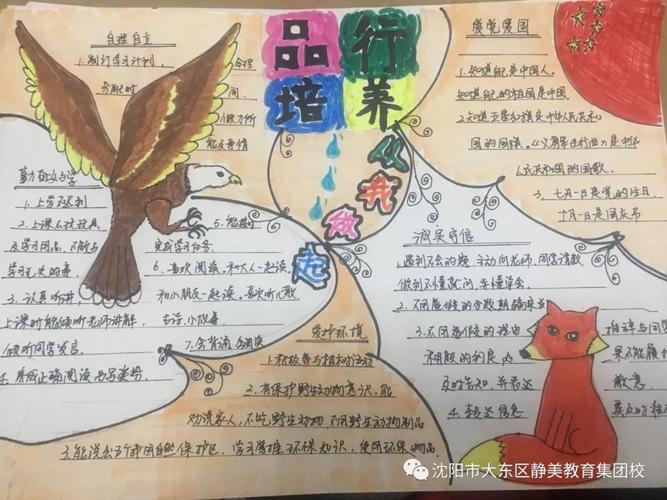 品行
培养
从我
做
起
自理自立
1.制订学习计划,合理
分配时间,
做力所
能及事情
爱党爱国
1.知道自己是中国人,
知道自己的祖国是中国.
2.知道五星红旗是中华人民共和
国的国旗。《义勇军进行曲》是中华
人民共和国的国歌。
3、七月一日是党的生日
十月一日是国庆节
勤奋好学
1.上学不迟到
2.上课不玩玩具
学习无关的事.
3、认真听讲,
上课时能倾听老师讲解,
倾听同学发言.
4.养成正确阅读书写姿势.
5.能按时
完成学习任务.
6.喜欢阅读,和大人一起读,
和小朋友一起读,喜欢听儿歌
7.会背诵
诚实守信
做到不懂就问,弄懂学会。
3.不用虚假的理由
4.转达信息
自评与同学
爱护环境
1.积极参与植树活动
2.有保护野生动物意识,能
劝说家人,不吃野生动物 不用野生动物制品
3.能说出五个中国自然保护区,学习掌握环保知识,使用环保物品.
沈阳市大东区静美教育集团校